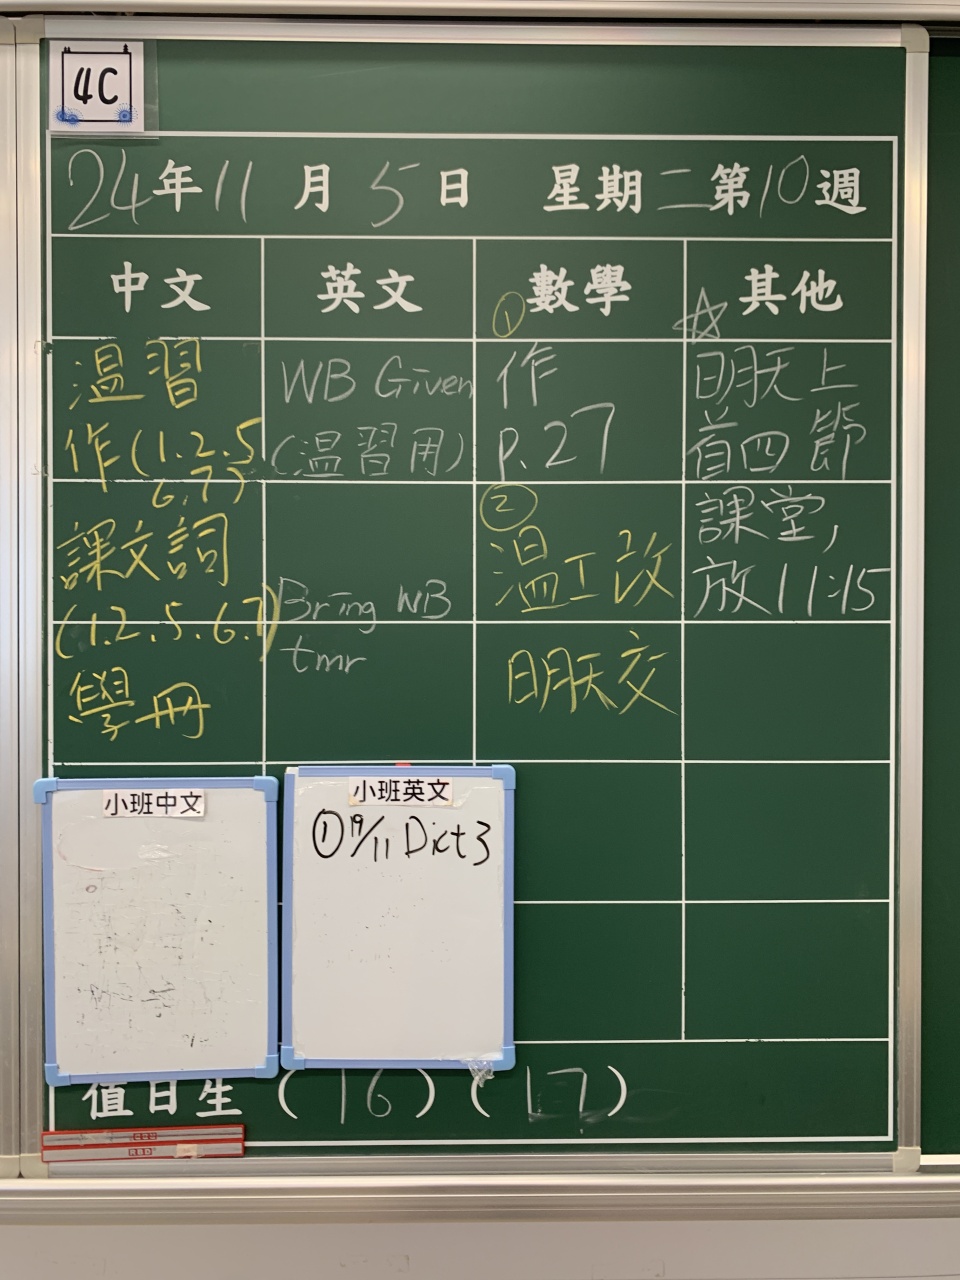 4C
24年11月5日 星期二第10週
中文
英文
①數學
☆其他
温習
作(1.2.5
6.7)
課文詞
(1.2.5.6.7)
學冊
WB Given
(温習用)
Bring WB
tmr
作
P.27
②
温工改
明天交
明天上
首四節
課堂,
放11:15
小班中文
小班英文
①19/11 Dict 3
值日生(16)(17)
RBD